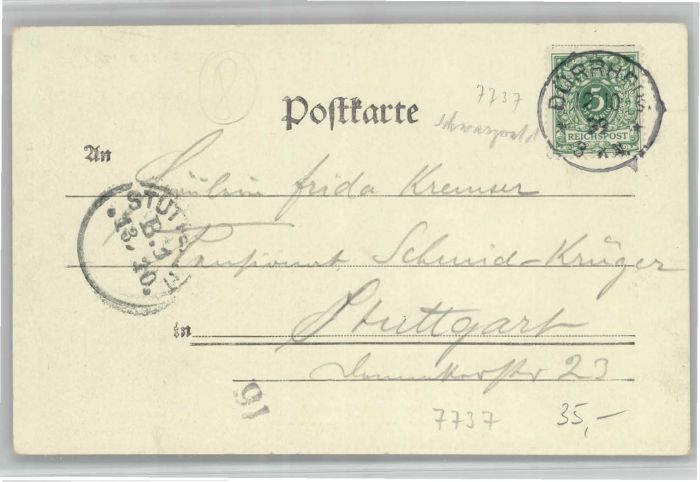 8
Postkarte
7737
Schwarzwald
DÜRRHEIM
5
REICHSPOST
An
Fräulein Frida Kremser
Pensionat Schmid-Krüger
in Stuttgart
23
STUTTGART
B.1
13.10.
91
7737
35,-